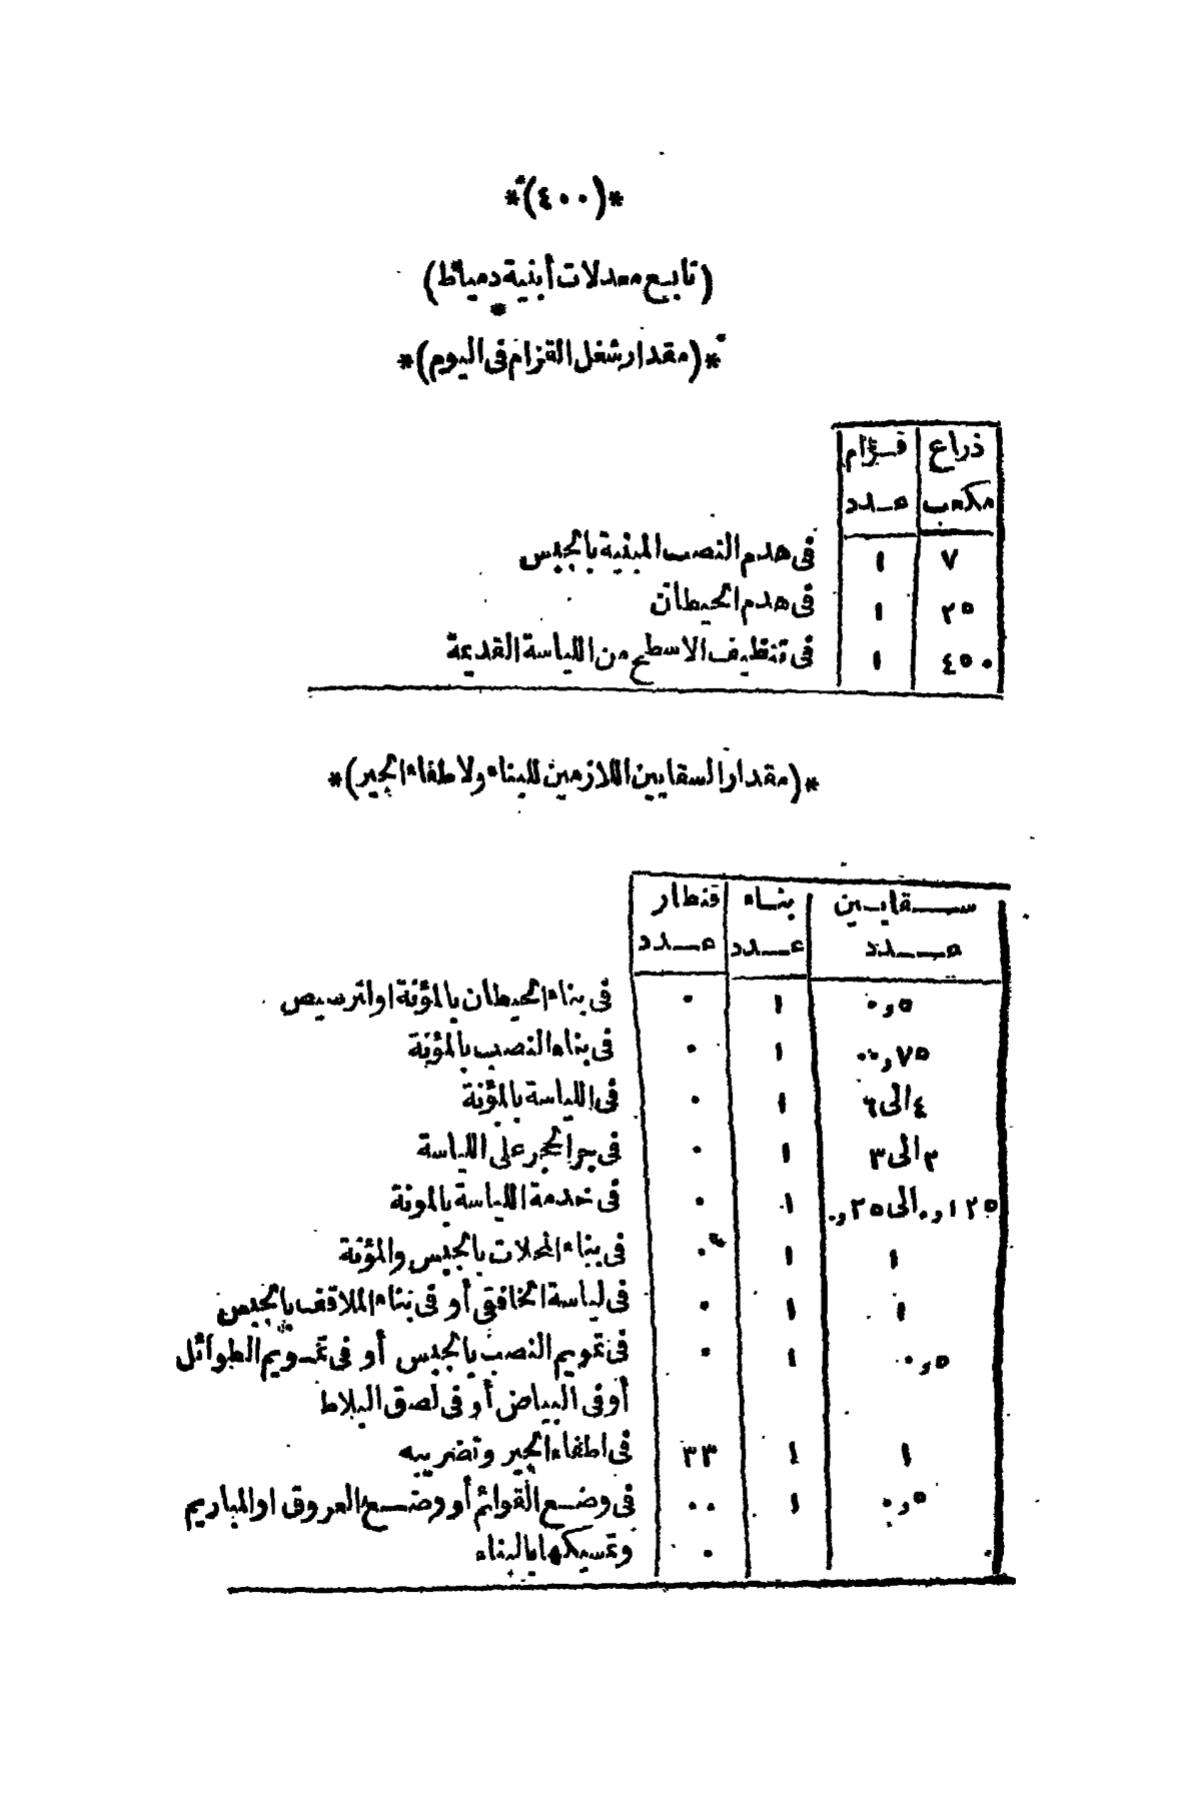 *(٤٠٠)*
(تابع معدلات أبنية دمياط)
*(مقدار شغل القزام فى اليوم)*
ذراع قزام
مكعب عدد
٧ ١ فى هدم النصب المبنية بالجبس
٢٥ ١ فى هدم الحيطان
٤٥٠ ١ فى تنظيف الاسطح من اللياسة القديمة
*(مقدار السقايين اللازمين للبناء ولاطفاء الجير)*
سقايين بناء قنطار
عدد عدد عدد
٠,٥ ١ ٠ فى بناء الحيطان بالمؤنة او الترسيص
٠,٧٥ ١ ٠ فى بناء النصب بالمؤنة
٤ الى ٦ ١ ٠ فى اللياسة بالمؤنة
٢ الى ٣ ١ ٠ فى جر الحجر على اللياسة
٠,١٢٥ الى ٠,٢٥ ١ ٠ فى خدمة اللياسة بالمونة
١ ١ ٠ فى بناء المحلات بالجبس والمؤنة
١ ١ ٠ فى لياسة الخافقى أو فى بناء الملاقف بالجبس
٠,٥ ١ ٠ فى تمويم النصب بالجبس أو فى تمويم الطوائل
أو فى البياض أو فى لصق البلاط
١ ١ ٣٣ فى اطفاء الجير وتضريبه
٠,٥ ١ ٠٠ فى وضع القوائم أو وضع العروق او المباريم
٠ وتمسيكها بالبناء